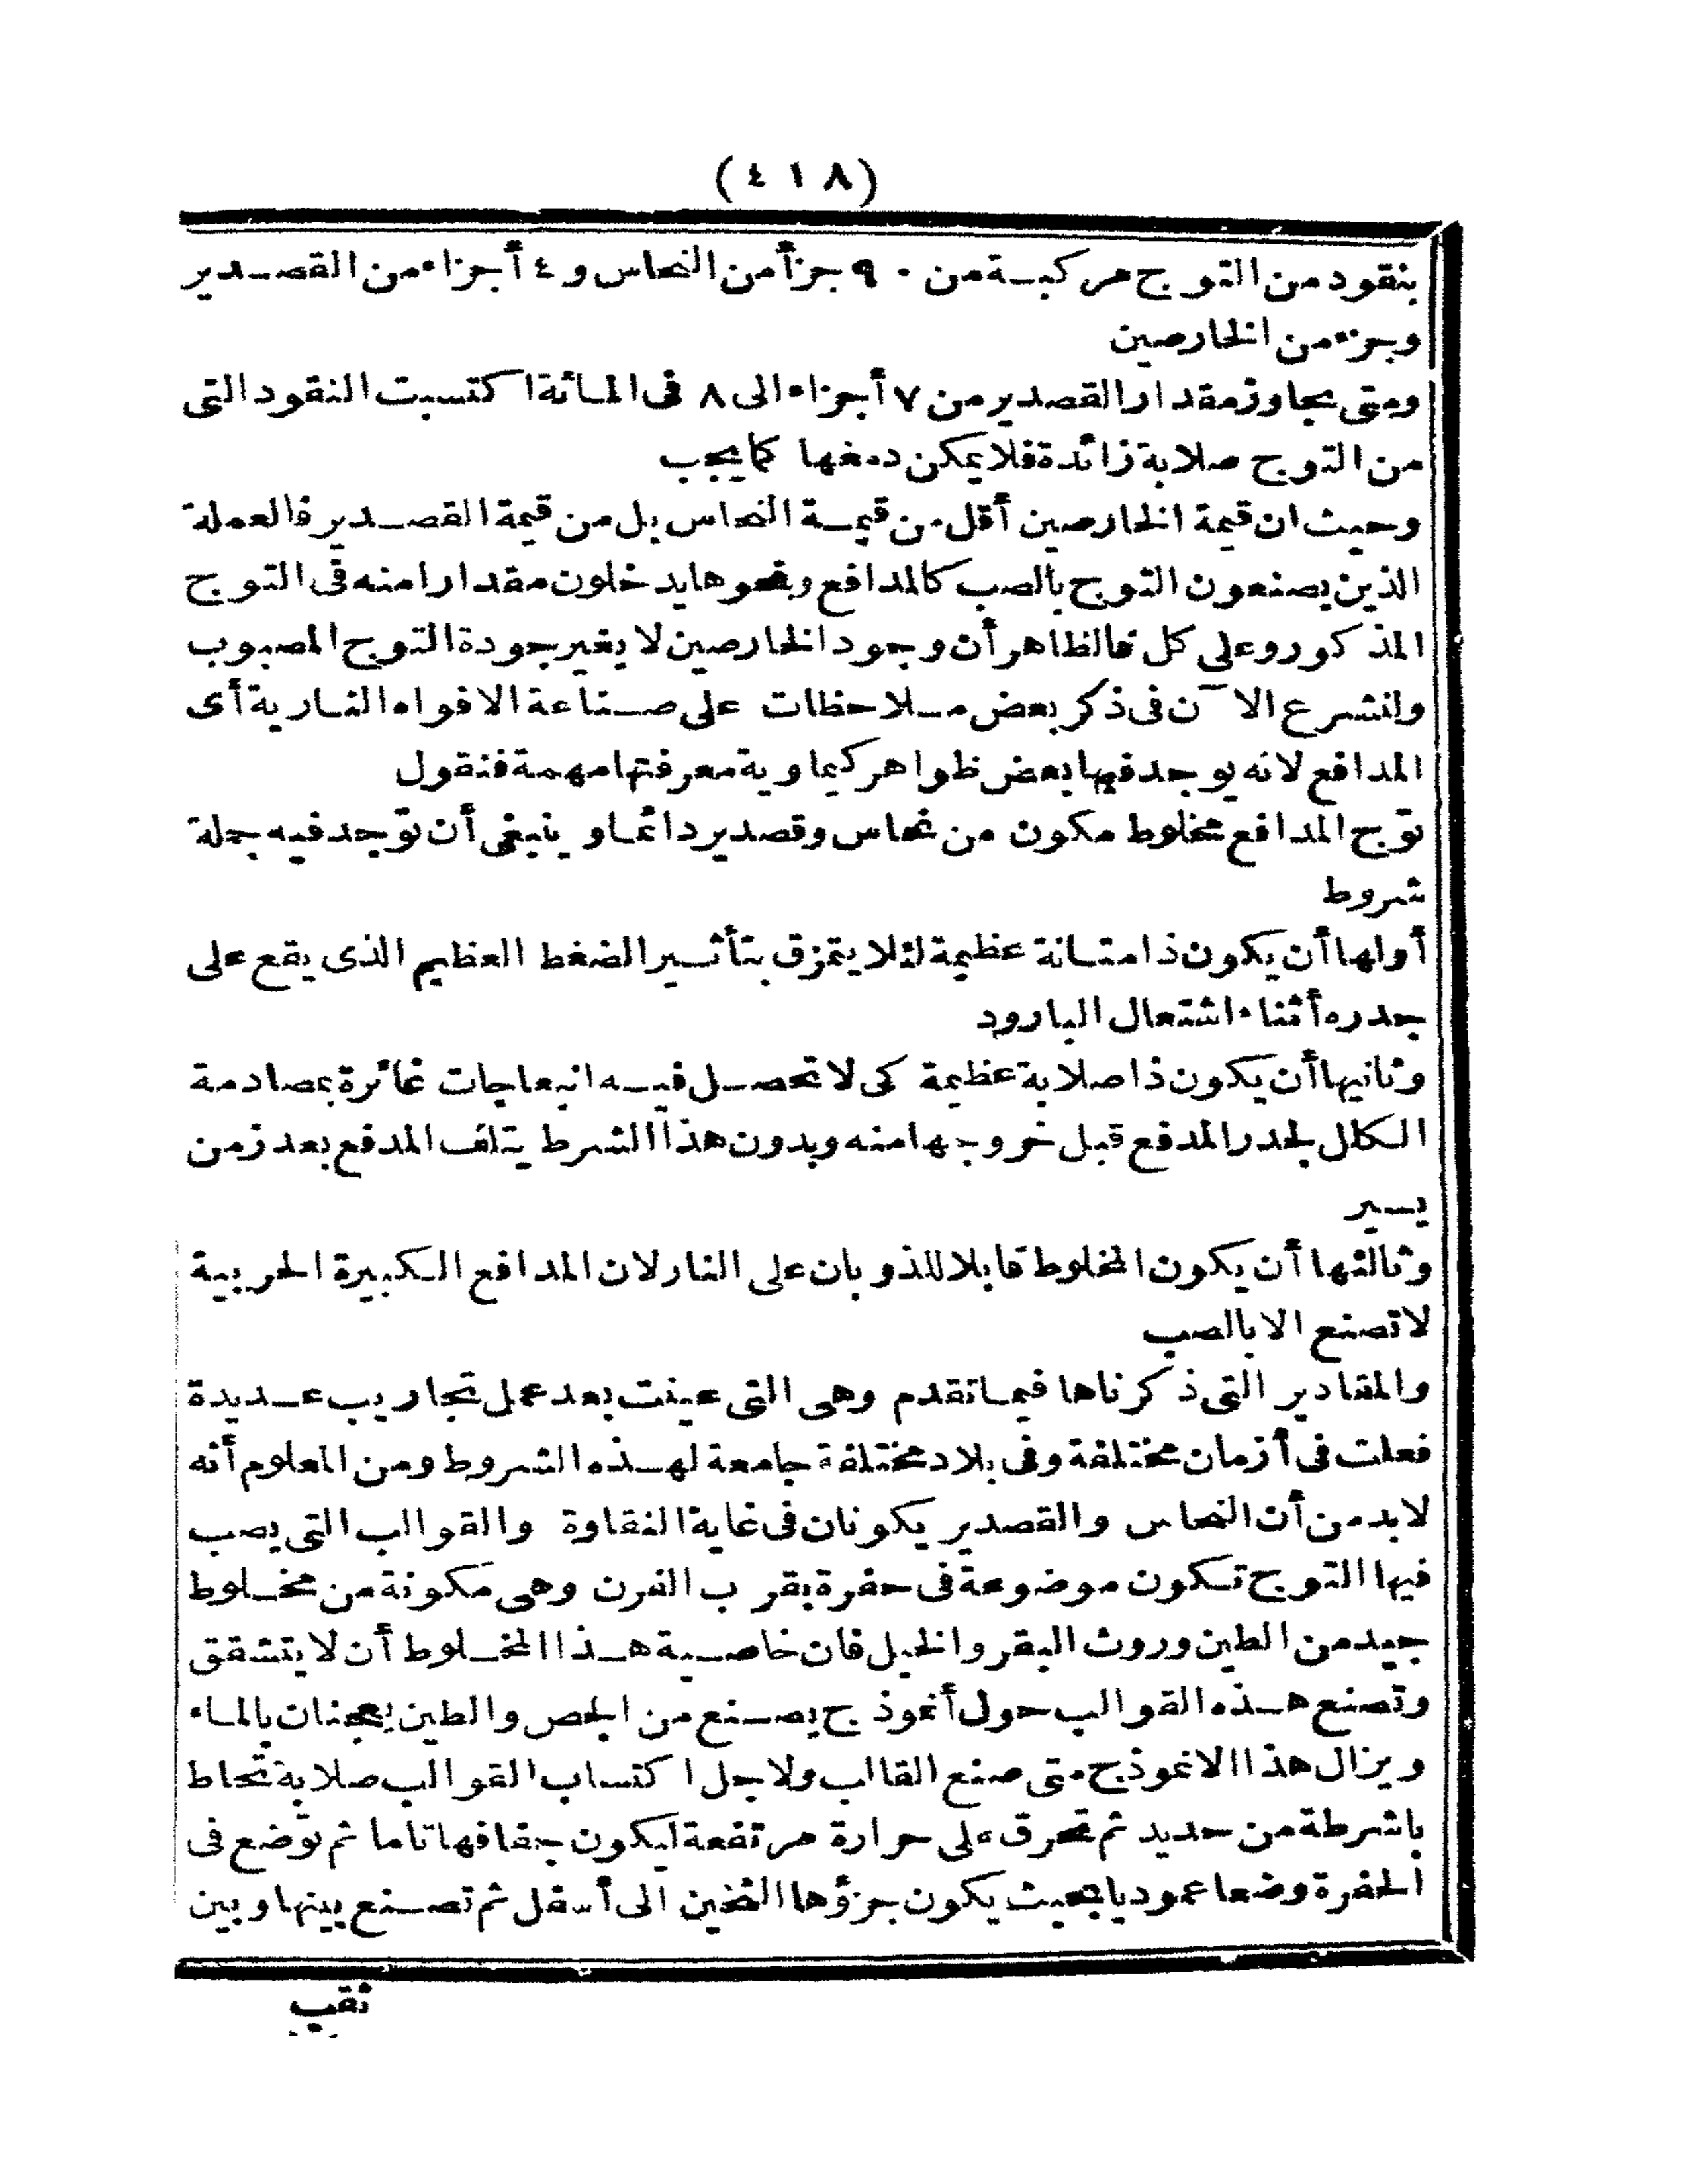 (٤١٨)
بنقود من التوج مركبة من ٩٠ جزأ من النحاس و ٤ أجزاء من القصدير
وجزء من الخارصين
ومتى تجاوز مقدار القصدير من ٧ أجزاء الى ٨ فى المائة اكتسبت النقود التى
من التوج صلابة زائدة فلا يمكن دمغها كما يجب
وحيث ان قيمة الخارصين أقل من قيمة النحاس بل من قيمة القصدير فالعملة
الذين يصنعون التوج بالصب كالمدافع ونحوها يدخلون مقدارا منه فى التوج
المذكور وعلى كل فالظاهر أن وجود الخارصين لا يغير جودة التوج المصبوب
ولنشرع الآن فى ذكر بعض ملاحظات على صناعة الافواه النارية أى
المدافع لانه يوجد فيها بعض ظواهر كيماوية معرفتها مهمة فنقول
توج المدافع مخلوط مكون من نحاس وقصدير دائما وينبغى أن توجد فيه جملة
شروط
أولها أن يكون ذا متانة عظيمة لئلا يتمزق بتأثير الضغط العظيم الذى يقع على
جدره أثناء اشتعال البارود
وثانيها أن يكون ذا صلابة عظيمة كى لا تحصل فيه انبعاجات غائرة بمصادمة
الكلل لجدر المدفع قبل خروجها منه وبدون هذا الشرط يتلف المدفع بعد زمن
يسير
وثالثها أن يكون المخلوط قابلا للذوبان على النار لان المدافع الكبيرة الحربية
لا تصنع الا بالصب
والمقادير التى ذكرناها فيما تقدم وهى التى عينت بعد عمل تجاريب عديدة
فعلت فى أزمان مختلفة وفى بلاد مختلفة جامعة لهذه الشروط ومن المعلوم أنه
لا بد من أن النحاس والقصدير يكونان فى غاية النقاوة والقوالب التى يصب
فيها التوج تكون موضوعة فى حفرة بقرب الفرن وهى مكونة من مخلوط
جيد من الطين وروث البقر والخيل فان خاصية هذا المخلوط أن لا يتشقق
وتصنع هذه القوالب حول أنموذج يصنع من الجص والطين يعجنان بالماء
ويزال هذا الانموذج متى صنع القالب ولاجل اكتساب القوالب صلابة تحاط
باشرطة من حديد ثم تحرق على حرارة مرتفعة ليكون جفافها تاما ثم توضع فى
الحفرة وضعا عموديا بحيث يكون جزؤها الثخين الى أسفل ثم تصنع بينها وبين
ثقب